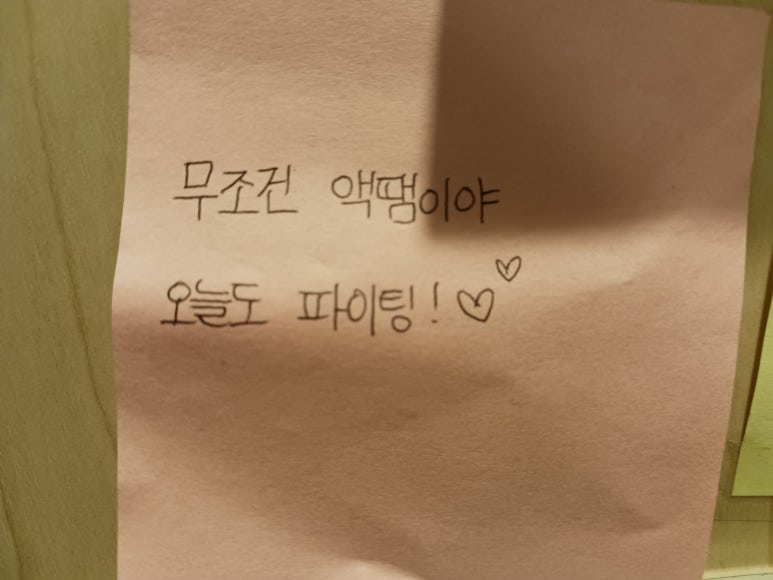 무조건 액땜이야
오늘도 파이팅! ♡♡